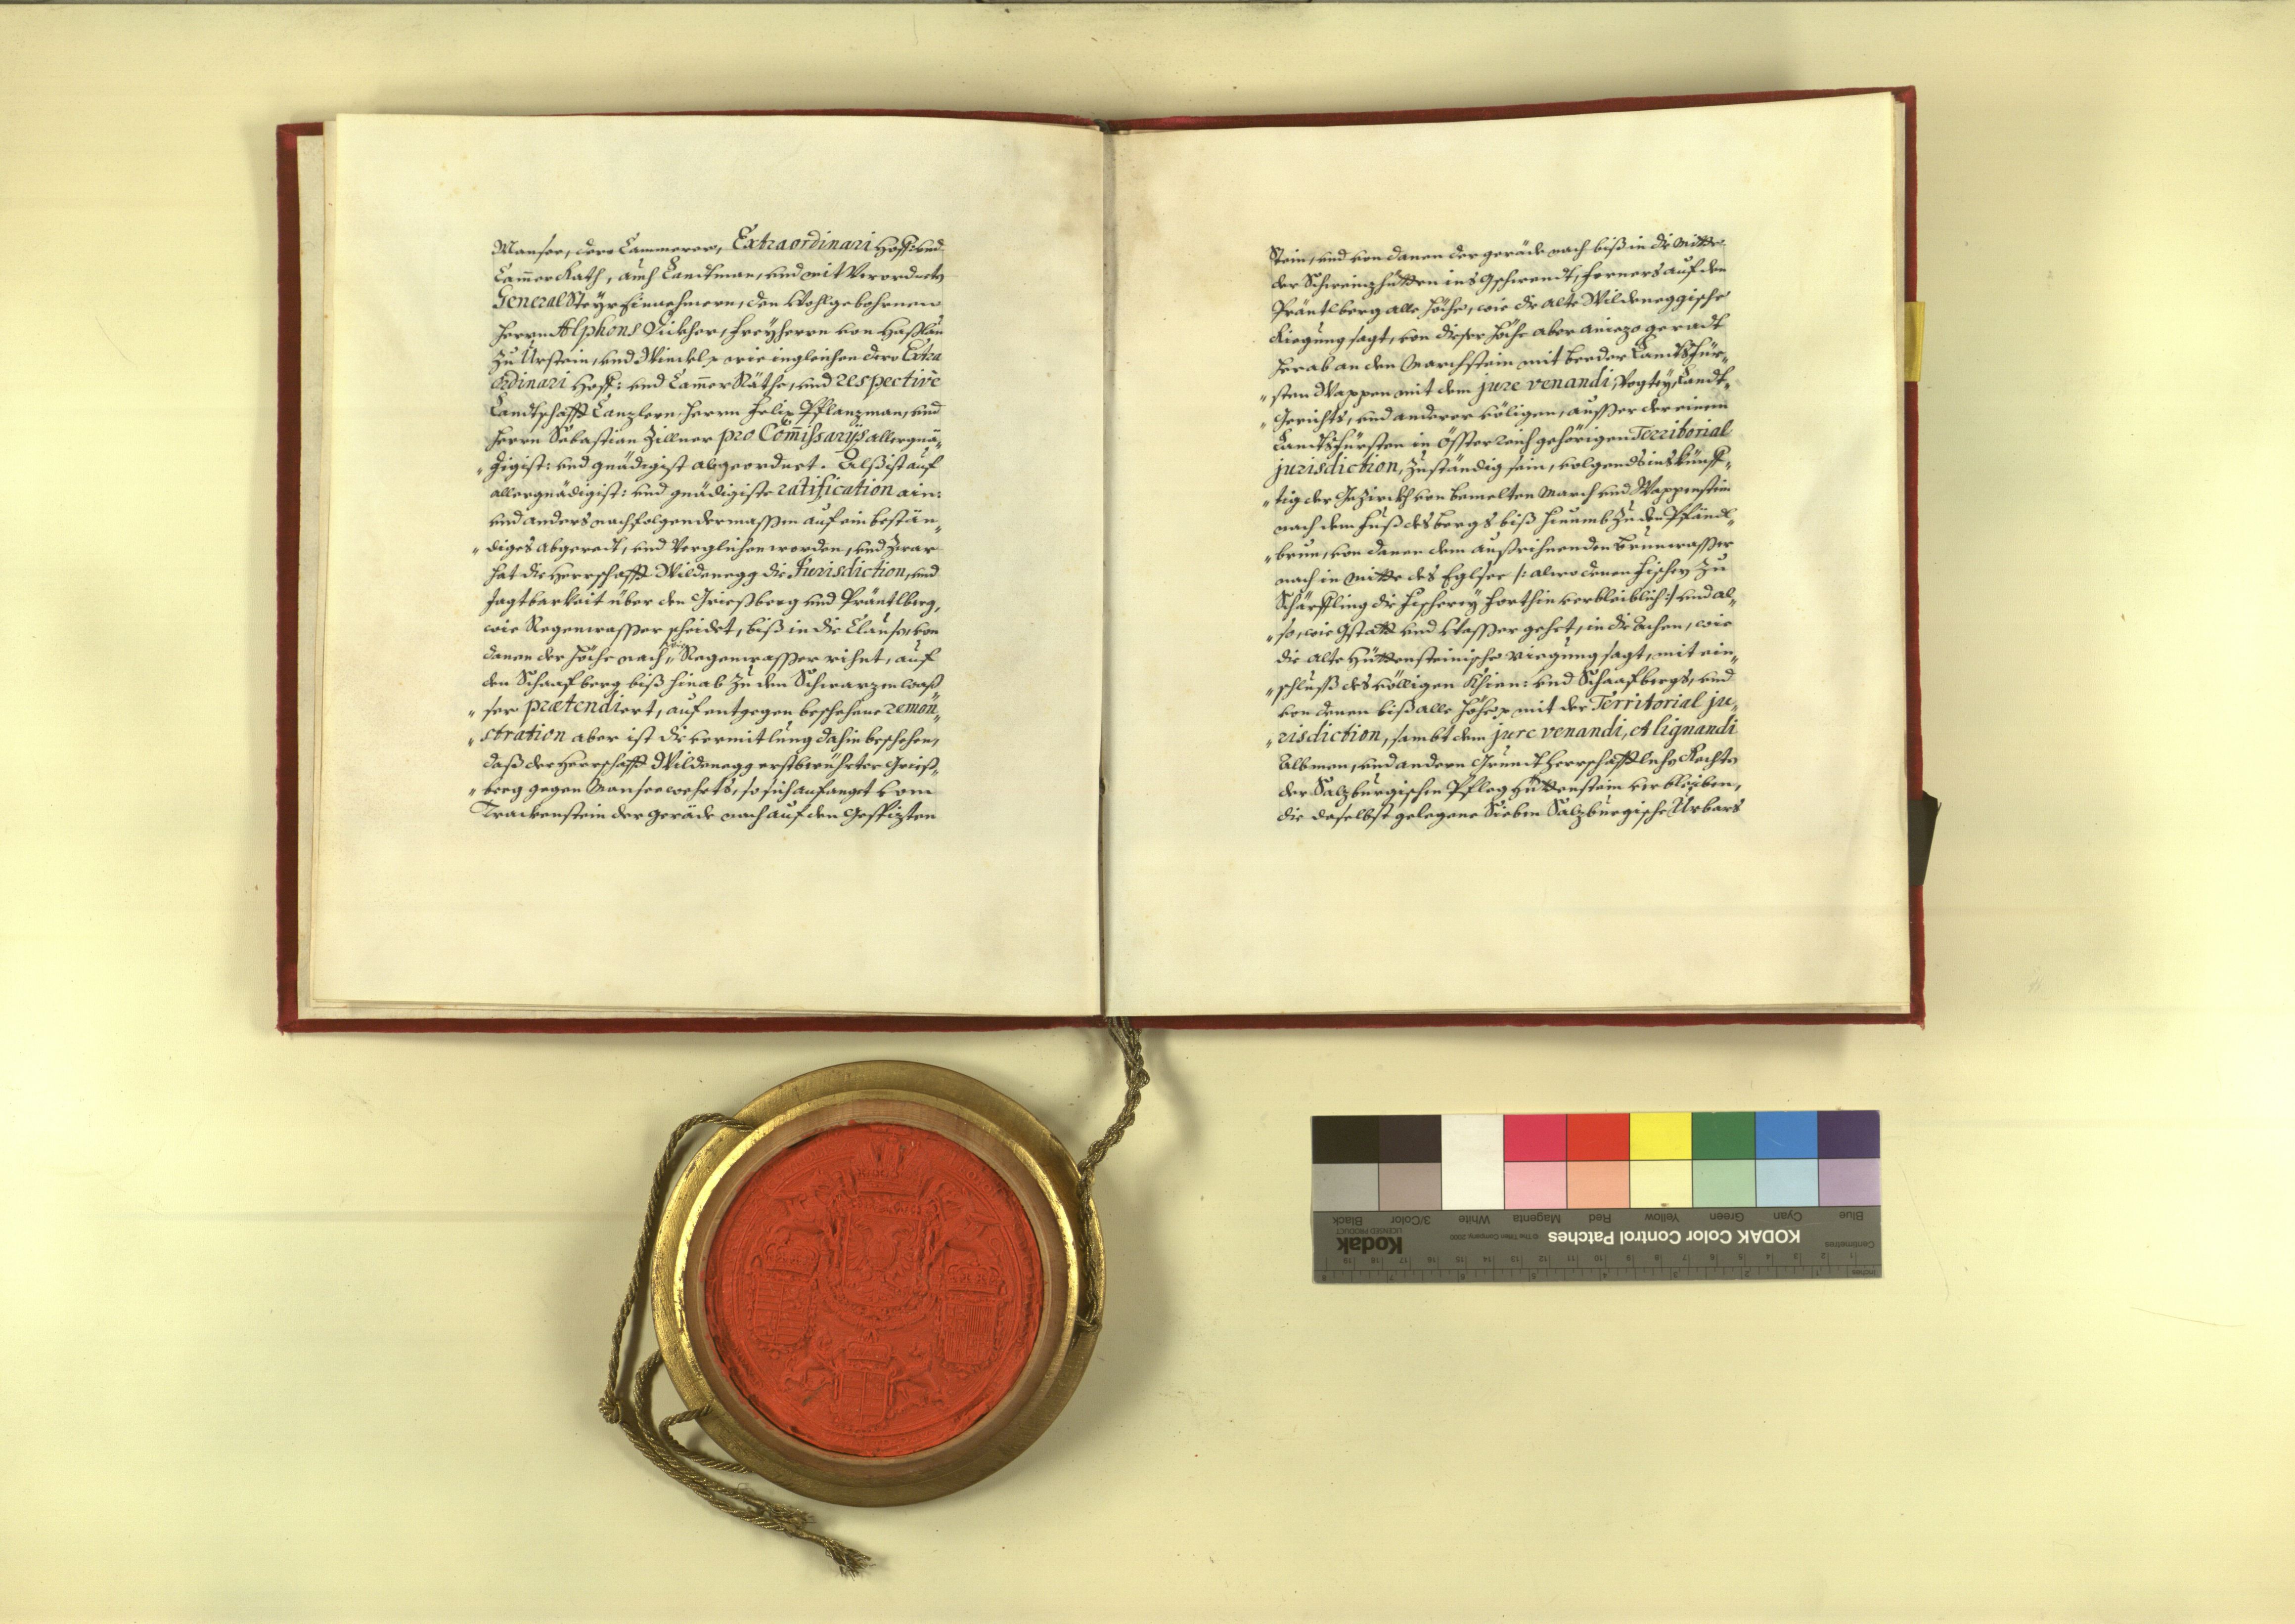 Mansee, dero Cammerer, Extraordinari Hoff: und
Cam̅er Rath, auch Landtman, und mit Verordneten
General Steyr Einnehmern, den Wohlgebohrnen
Herrn Alphons Dickher, Freyherrn von Haßlau
zu Urstein, und Winckl ꝛc wie ingleichen dero Extra
ordinari Hoff: und Cam̅er Räthe, und respectivè
Landtschafft Canzlern, Herrn Felix Pflanzman, und
Herrn Sebastian Zillner pro Com̅ißarijs allergnä„
„digist: und gnädigist abgeordnet. Alß ist auf
allergnädigist: und gnädigiste ratification ain:
und anders nachfolgendermassen auf ein bestän„
„diges abgeredt, und Verglichen worden, und zwar
hat die Herrschafft Wildenegg die Jurisdiction, und
Jagtbarkeit über den Grießberg und Präntlberg,
wie Regenwasser scheidet, biß in die Clausen, von
danen der Höche nach, wie Regenwasser rihnt, auf
den Schaafberg biß hinab zu dem Schwarzenwaß„
„ser prætendiert, auf entgegen beschehene remon„
„stration aber ist die vermitlung dahin beschehen,
daß der Herrschafft Wildenegg erstberührter Grieß„
„berg gegen Mansee wehrts, so sich anfanget vom
Trackenstein der geräde nach auf den Gespizten
Stein, und von danen der geräde nach biß in die Mitte
der Schweinzhütten ins Gschwendt, ferners auf den
Präntlberg alle Höche, wie die alte Wildeneggische
Riegung sagt, von dieser Höche aber aniezo geradt
herab an den Marchstein mit beeder Landtsfür„
„sten Wappen mit dem jure venandi, Vogtey, Landt„
„Gerichts, und anderer völligen, ausser der einem
Landtsfürsten in Össterreich gehörigen Territorial
jurisdiction, zuständig sein, volgends ins künff„
„tig der Bezirckh von bemelten March und Wappenstein
nach dem Fuß des Bergs biß hinumb zu den Pfändl„
„brun, von danen dem außrihnenden Brunwasser
nach in mitte des Eglsee /: alwo denen Fischern zu
Schärffling die Fischerey forthin verbleiblich :/ und al„
„so, wie Gstatt und Wasser gehet, in die Achen, wie
die alte Hüttensteinische riegung sagt, mit ein„
„schluß des völligen Khien: und Schaafbergs, und
von denen biß alle Höhe ꝛc mit der Territorial ju„
„risdiction, sambt dem jure venandi, et lignandi
Albmen, und andern Grundtherrschafftlichen Rechten
der Salzburgischen Pfleg Hüttenstein verbleiben,
die daselbst gelegene Sieben Salzburgische Urbars
KODAK Color Control Patches
Kodak
LICENSED PRODUCT
© The Tiffen Company, 2000
Blue Cyan Green Yellow Red Magenta White 3/Color Black
Centimetres
Inches